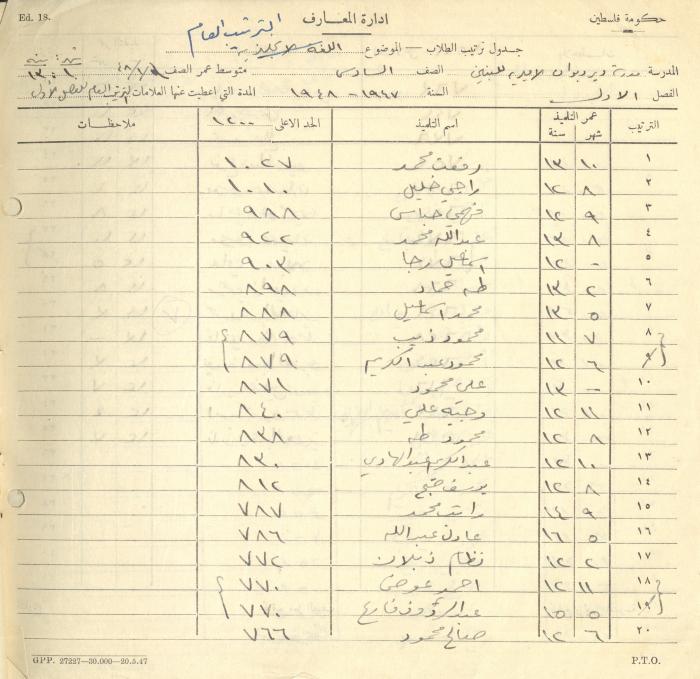 Ed. 18.
ادارة المعارف
حكومة فلسطين
الترتيب العام
جدول ترتيب الطلاب — الموضوع اللغة الانجليزية
المدرسة مدرسة دير ديوان الاميرية للبنين الصف السادس متوسط عمر الصف
الفصل الاول السنة ١٩٤٧ - ١٩٤٨ المدة التي اعطيت عنها العلامات الترتيب العام للفصل الأول
الترتيب عمر التلميذ شهر سنة اسم التلميذ الحد الاعلى ١٢٠٠ ملاحظات
١ ١٠ ١٣ رفعت محمد ١٠٢٧
٢ ٨ ١٢ راجي خليل ١٠١٠
٣ ٩ ١٢ فهمي عباس ٩٨٨
٤ ٨ ١٣ عبدالله محمد ٩٢٢
٥ - ١٢ اسماعيل رجا ٩٠٣
٦ ٢ ١٣ طه حماد ٨٩٨
٧ ٥ ١٣ محمد اسماعيل ٨٨٨
٨ ٧ ١١ محمود ذيب ٨٧٩
٩ ٦ ١٢ محمود عبد الكريم ٨٧٩
١٠ - ١٣ علي محمود ٨٧١
١١ ١١ ١٢ وجيه علي ٨٤٠
١٢ ٨ ١٢ محمود طه ٨٣٨
١٣ ١٠ ١٢ عبدالكريم عبدالهادي ٨٣٠
١٤ ٨ ١٢ يوسف ٨١٢
١٥ ٩ ١٤ راتب محمد ٧٨٧
١٦ ٥ ١٦ عادل عبدالله ٧٨٦
١٧ ٢ ١٢ نظام ٧٧٢
١٨ ١١ ١٢ احمد عوض ٧٧٠
١٩ ٥ ١٥ عبدالرؤوف فارع ٧٧٠
٢٠ ٦ ١٢ صالح محمود ٧٦٦
GPP. 27227—30.000—20.5.47
P.T.O.